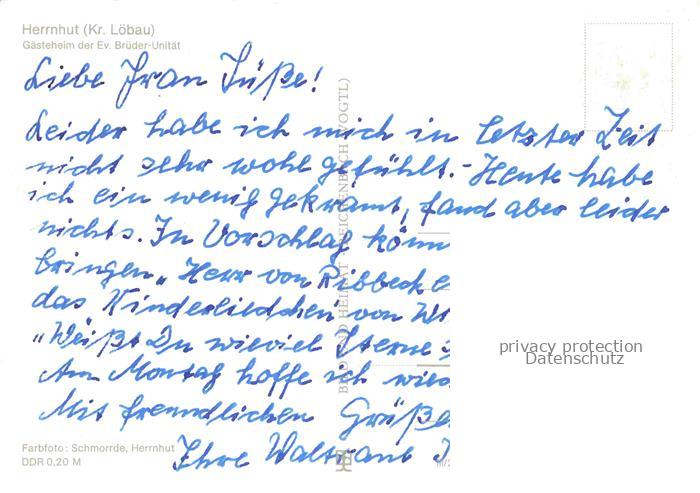 Herrnhut (Kr. Löbau)
Gästeheim der Ev. Brüder-Unität
Liebe Frau Süße!
Leider habe ich mich in letzter Zeit
nicht sehr wohl gefühlt.- Heute habe
ich ein wenig gekramt, fand aber leider
nichts. In Vorschlag könn
bringen „Herr von Ribbeck
das Kinderliedchen von
„Weißt Du wieviel Sterne
Am Montag hoffe ich wied
Mit freundlichen Grüße
Ihre Waltraut
privacy protection
Datenschutz
BILD UND HEIMAT REICHENBACH (VOGTL)
Farbfoto: Schmorrde, Herrnhut
DDR 0,20 M